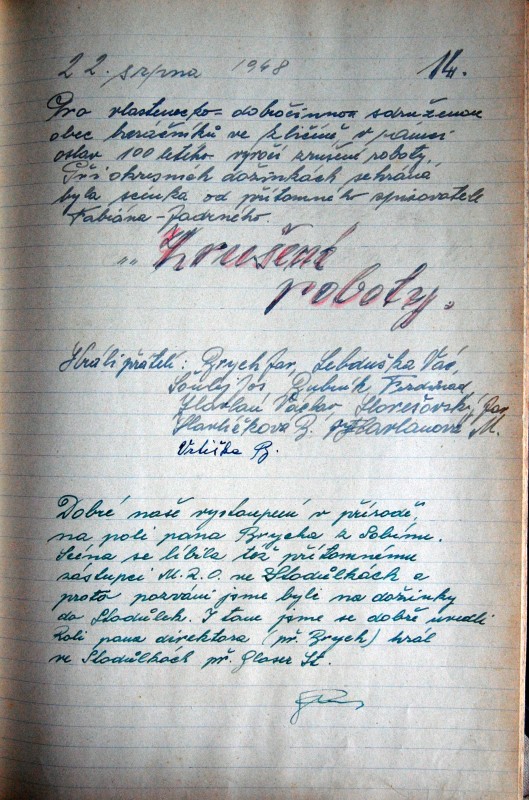 22. srpna 1948 14.
Pro vlastenecko-dobročinnou sdruženou
obec baráčníků ve Zličíně v rámci
oslav 100 letého výročí zrušení roboty.
Při okresních dožínkách sehrána
byla scénka od přítomného spisovatele
Fabiána-Jadrného.
„Zrušení
roboty."
Hráli přátelé: Brych Jar, Lebduška Vác,
Bubník
Václav Jar
Havlíčková B. M.
Vrliška B.
Dobré naše vystoupení v přírodě,
na poli pana Brycha z Sobína.
Scéna se líbila též přítomnému
zástupci M.R.O. ve Stodůlkách a
proto pozváni jsme byli na dožínky
do Stodůlek. I tam jsme se dobře uvedli
Roli pana direktora (př. Brych) hrál
ve Stodůlkách př. Glaser St.